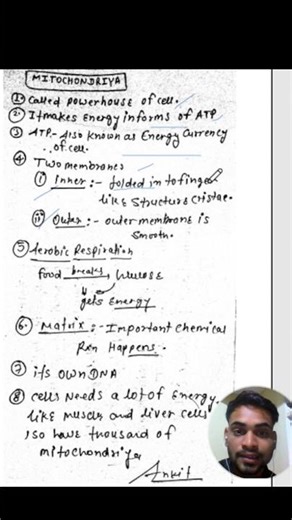 MITOCHONDRIYA
① Called powerhouse of cell.
② It makes Energy in forms of ATP
③ ATP- Also known as Energy Currency
of cell.
④ Two membranes
(i) Inner :- folded in to finger
like Structure Cristae.
(ii) Outer :- outer membrane is
Smooth.
⑤ Aerobic Respiration
food breaks Glucose
gets Energy
⑥ Matrix :- Important Chemical
Rxn Happens.
⑦ its OWN DNA
⑧ Cells Needs a lot of Energy.
like Muscle and liver cells
, so have thousaid of
mitochondriya
Ankit